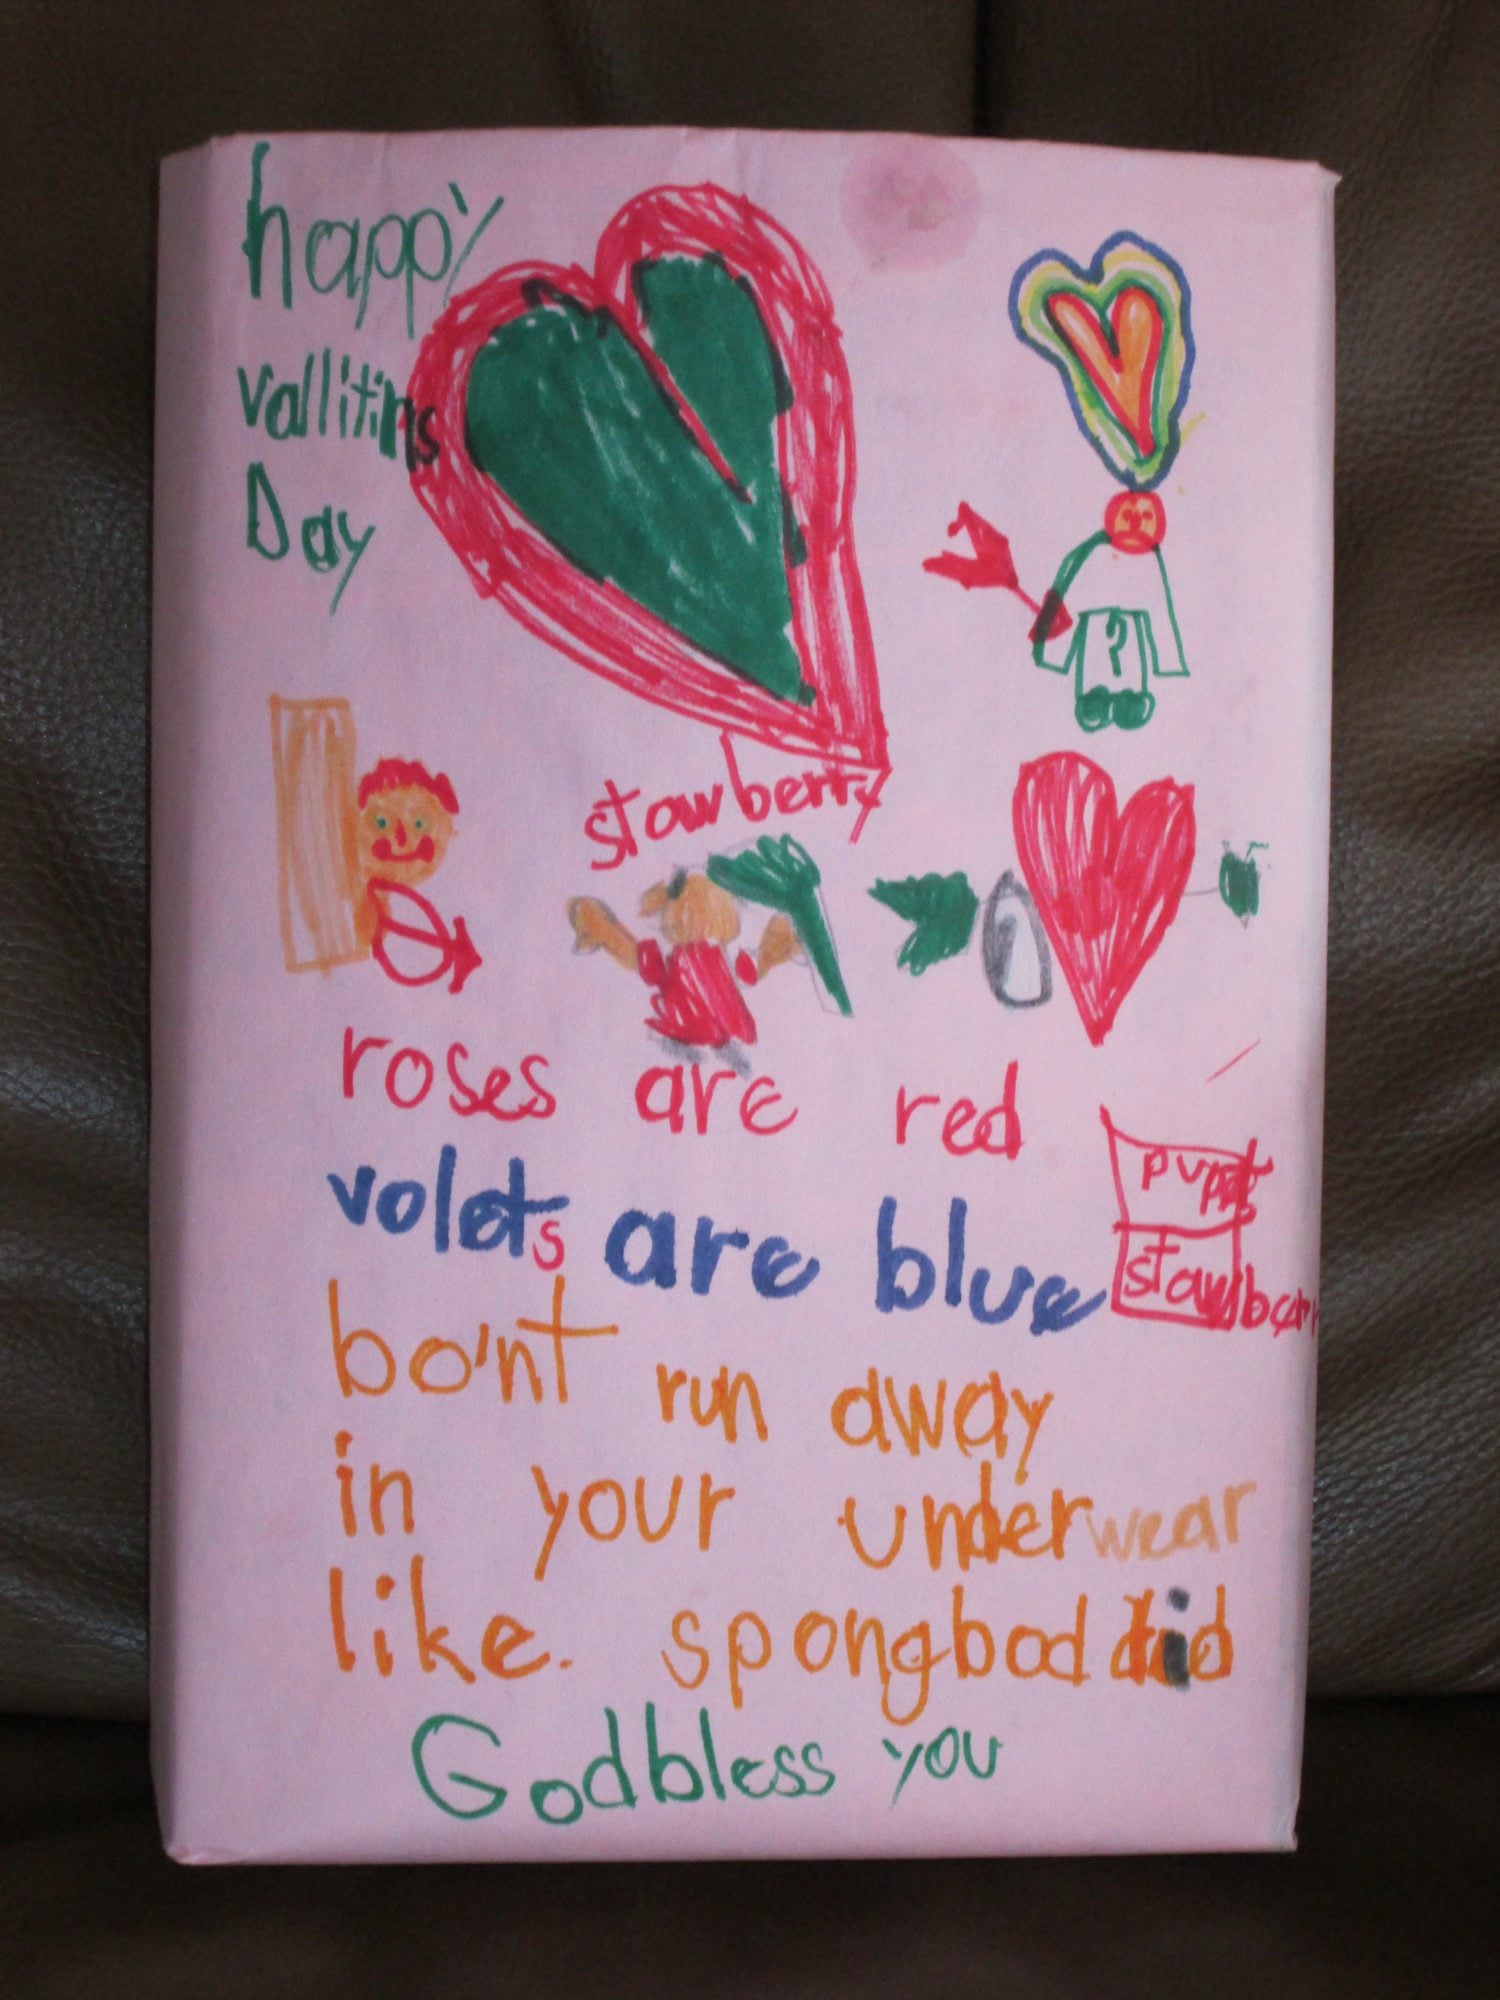 happy
vallitins
Day
stawberry
roses are red
volets are blue
bo'nt run away
in your underwear
like. spongbod did
God bless you